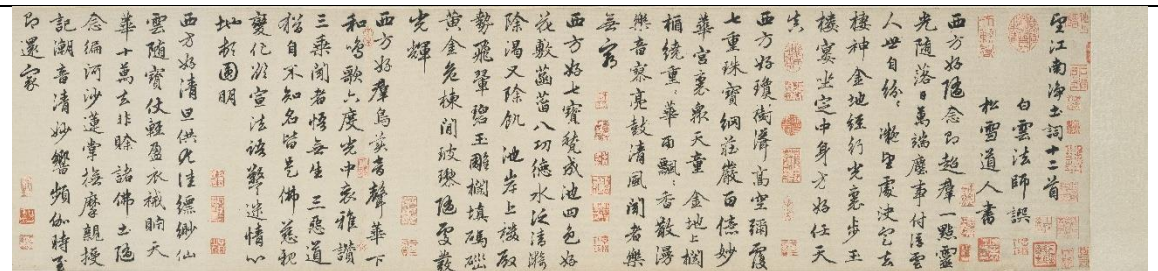 望江南淨土詞十二首
白雲法師譔
松雪道人書
西方好隨念即超羣一點靈
光隨落日萬端塵事付浮雲
人世自紛〻 凝望處決定去
棲神金地經行光裏步玉
樓宴坐定中身方好任天
真
西方好瓊樹聳高空彌覆
七重珠寶網莊嚴百億妙
華宮裏衆天童 金地上欄
楯繞重〻華雨飄〻香散漫
樂音寥亮鼓清風聞者樂
無窮
西方好七寶甃成池四色好
花敷菡萏八功德水泛清漪
除渴又除飢 池岸上樓殿
勢飛翬碧玉雕欄填碼碯
黃金危棟間玻瓈隨處發
光輝
西方好羣鳥美音聲華下
和鳴歌六度光中哀雅讚
三乘聞者悟無生 三惡道
猶自不知名皆是佛慈親
變化欲宣法語警迷情心
地頓圓明
西方好清旦供尤佳縹緲仙
雲隨寶仗輕盈衣裓貯天
華十萬去非賒 諸佛土隨
念徧河沙蓮掌撫摩親授
記潮音清妙響頻伽時至
即還家